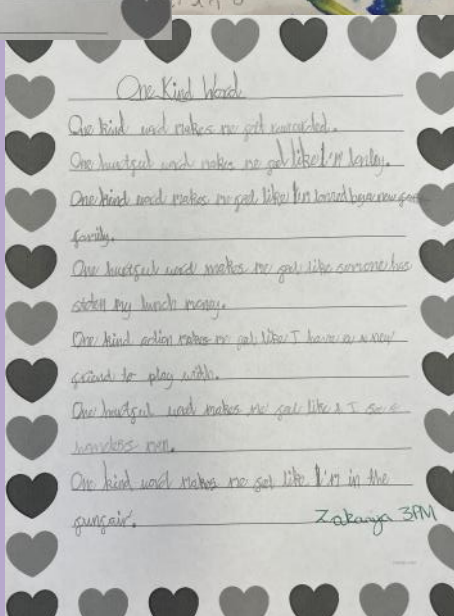 One Kind Word
One kind word makes me geel rewarded.
One hurtgul word makes me geel like I'm lonley.
One kind word makes me geel like I'm loved by a new
family.
One hurtgul word makes me geel like someone has
stolen my lunch money.
One kind action makes me geel like I have a new
griend to play with.
One hurtgul word makes me geel like I see a
homeless man.
One kind word makes me geel like I'm in the
gungair.
Zakariya 3PM